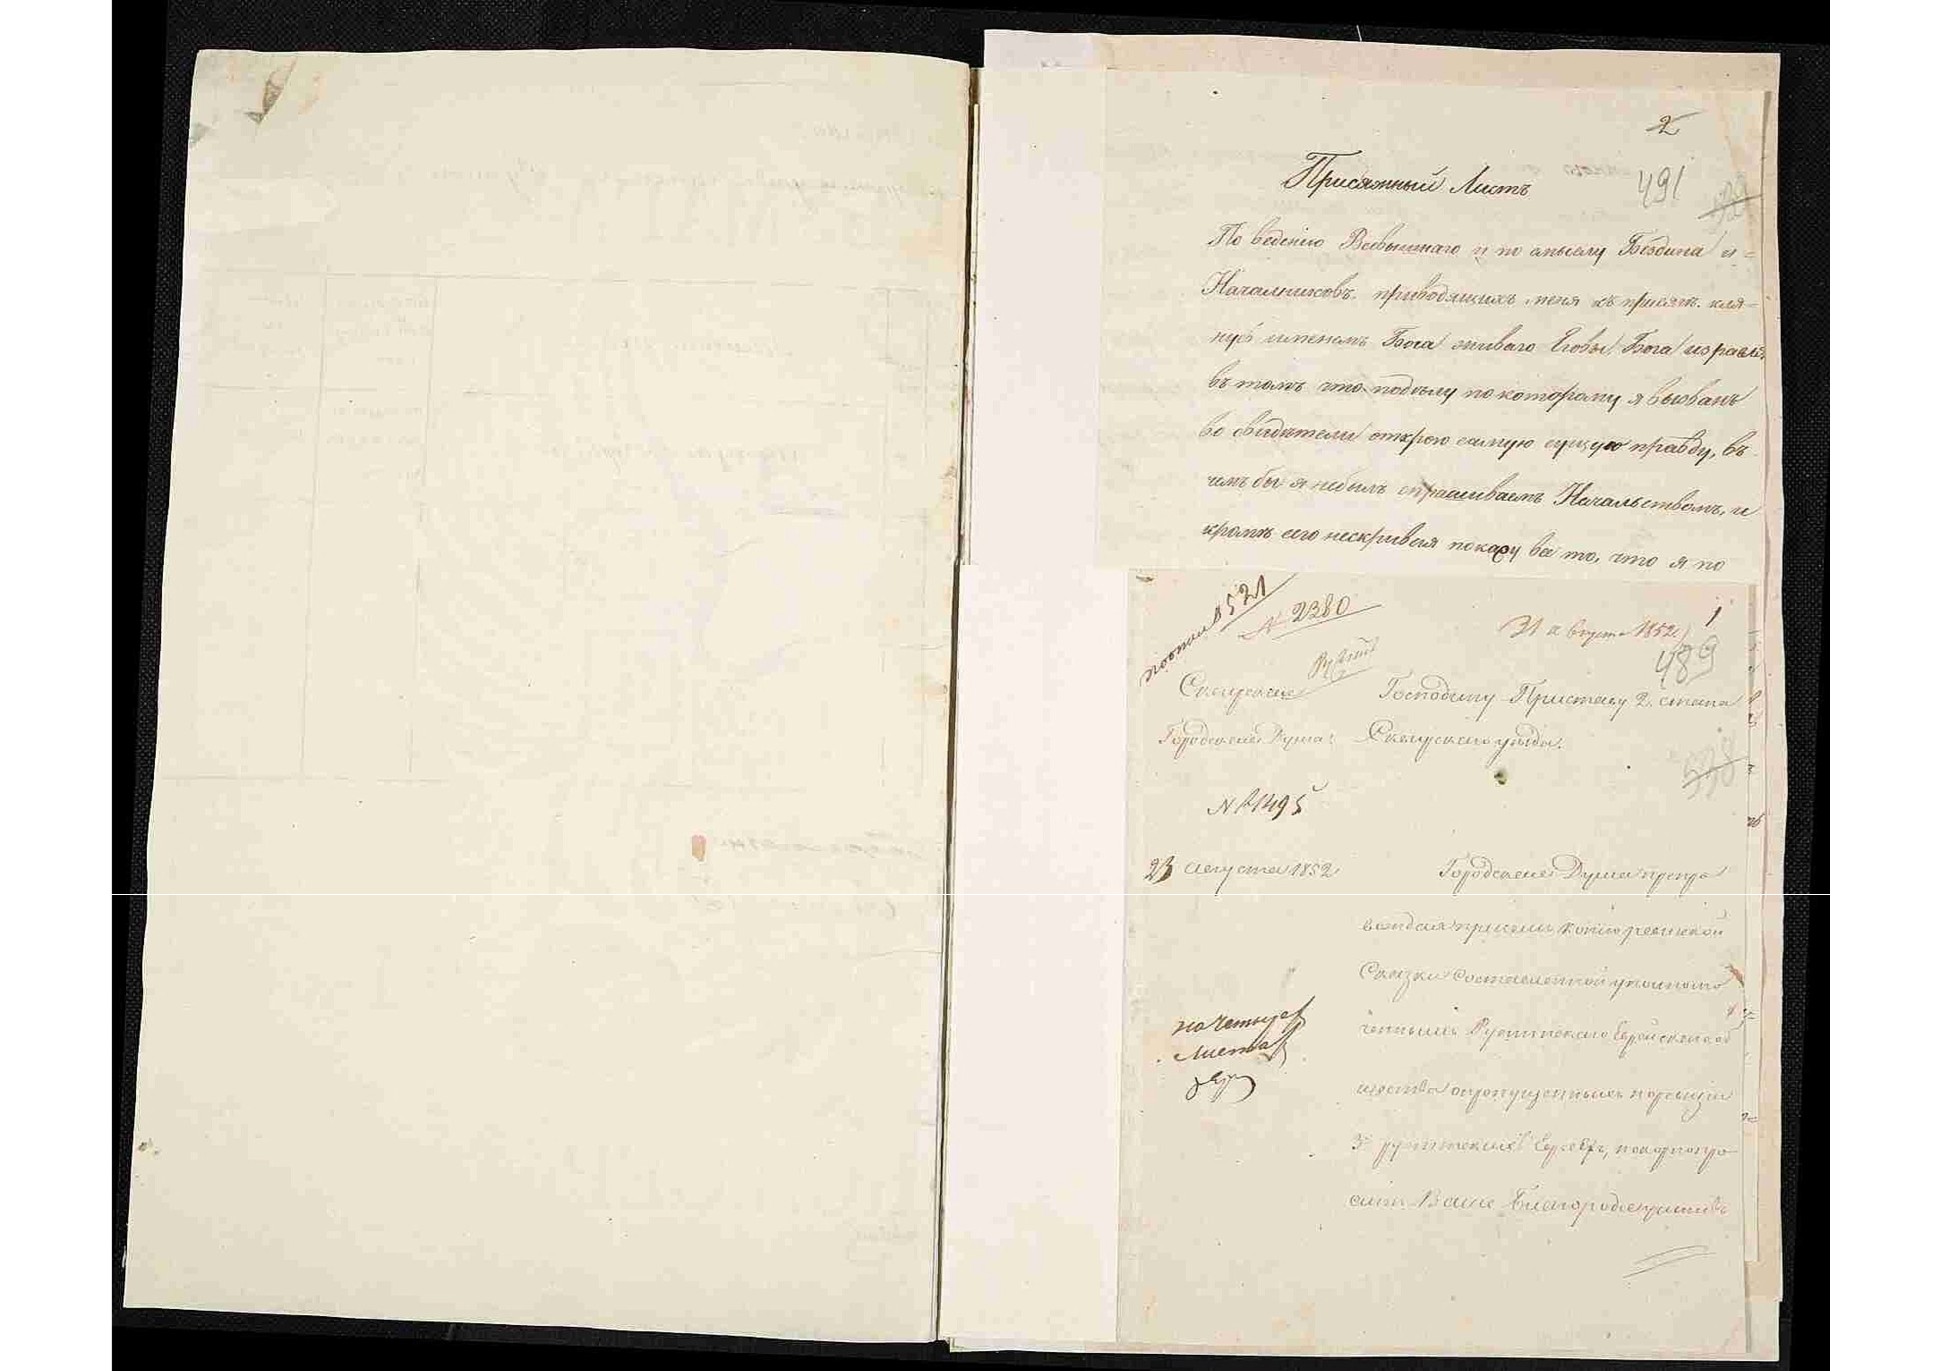 2
Присяжный Листъ
491
По веденію Всевышнаго и по смыслу Бездина и=
Началниковъ приводящихъ меня къ присягѣ кля-
нусь имянемъ Бога живаго Еговы Бога израелѣ,
въ томъ что подѣлу по которому я вызванъ
во свидѣтели открою самую сущую правду, въ
чемъ бы я небылъ спрашиваемъ Начальствомъ, и
кромѣ сего нескрывая покажу всё то, что я по
№ 2380
31 августа 1852
1
489
Сквирская
Господину Приставу 2. стана
Городская Дума
Сквирскаго уѣзда.
538
№ 1495
23 августа 1852
Городская Дума препро
вождая присемъ копію ревизкой
Сказки составленной уполномо
ченнымъ Ружинскаго Еврейскаго об
щества опропущенныхъ поревизіи
на четырех
листах
ружинскихъ Евреевъ, покорно про
ситъ Ваше Благородіе